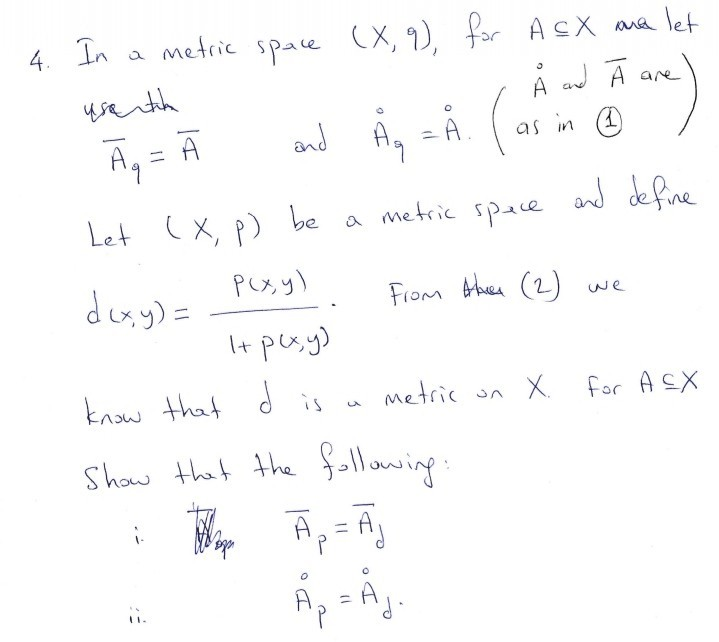 4. In a metric space (X, q), for A ⊆ X let
A̅_q = A̅ and Å_q = Å. (Å and A̅ are as in ①)
Let (X, p) be a metric space and define
d(x,y) = p(x,y) / 1 + p(x,y) . From (2) we
know that d is a metric on X. For A ⊆ X
Show that the following:
i. A̅_p = A̅_d
ii. Å_p = Å_d.